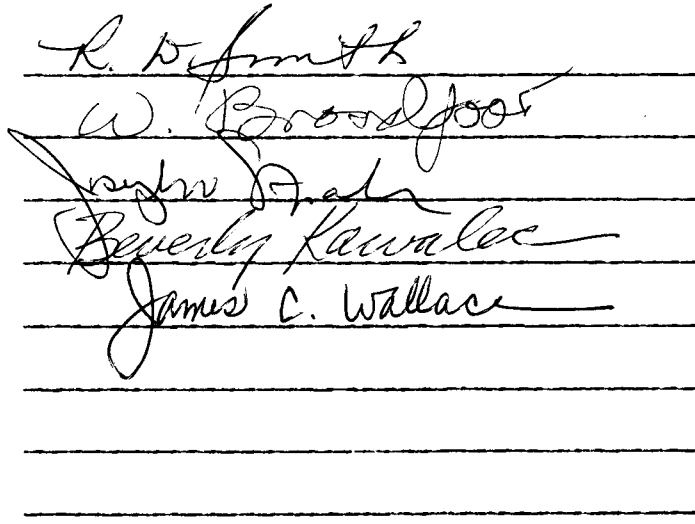 R. D. Smith
W. Broadfoot
Joseph
Beverly Kawalec
James C. Wallace